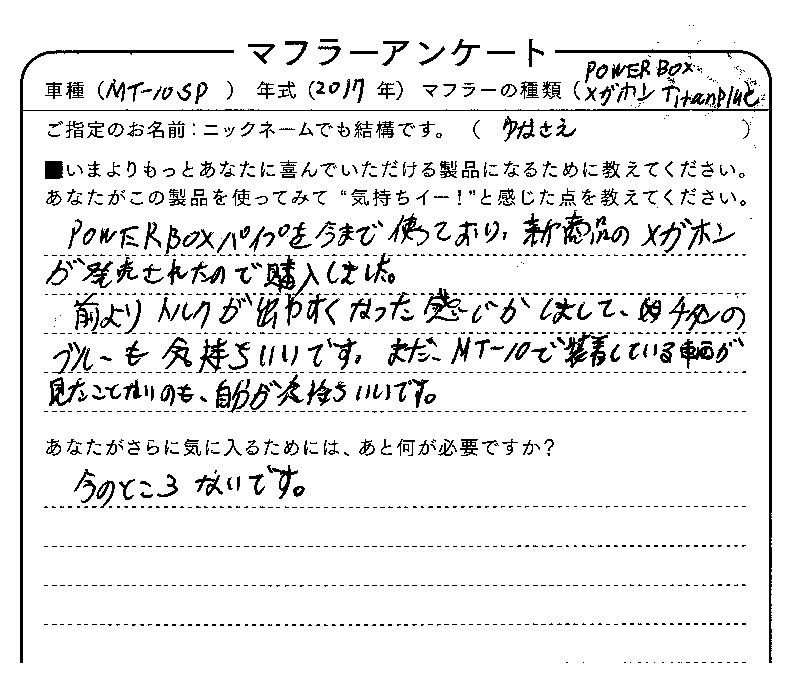 マフラーアンケート
車種（MT-10SP）年式（2017年）マフラーの種類（POWER BOX メガホン Titanblue
ご指定のお名前：ニックネームでも結構です。（ゆはさえ）
■いまよりもっとあなたに喜んでいただける製品になるために教えてください。
あなたがこの製品を使ってみて“気持ちイー！”と感じた点を教えてください。
POWERBOXパイプを今まで使っており、新商品のメガホン
が発売されたので購入しました。
前よりトルクが出やすくなった感じがしまして、チタンの
ブルーも気持ちいいです。まだ、MT-10で装着している車両が
見たことないのも、自分が気持ちいいです。
あなたがさらに気に入るためには、あと何が必要ですか？
今のところないです。